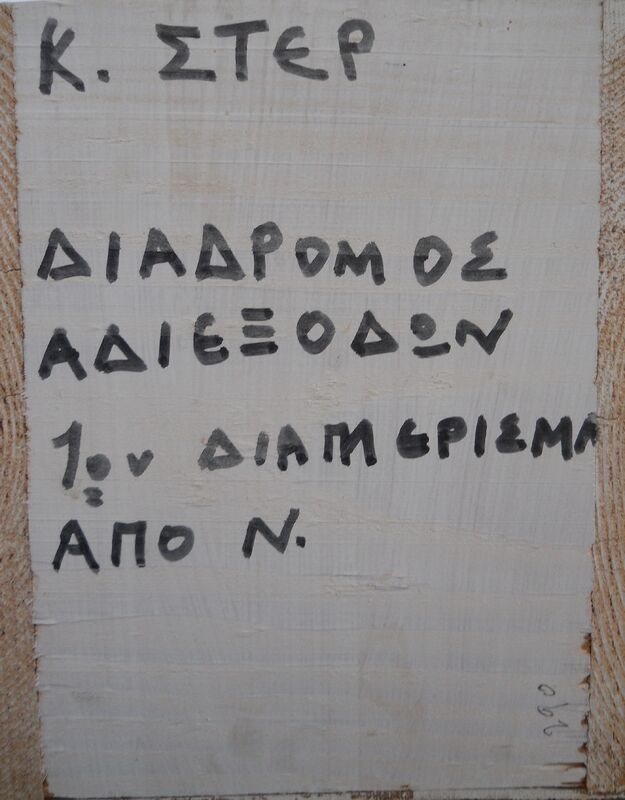 Κ. ΣΤΕΡ
ΔΙΑΔΡΟΜΟΣ
ΑΔΙΕΞΟΔΩΝ
1ον ΔΙΑΜΕΡΙΣΜΑ
ΑΠΟ Ν.